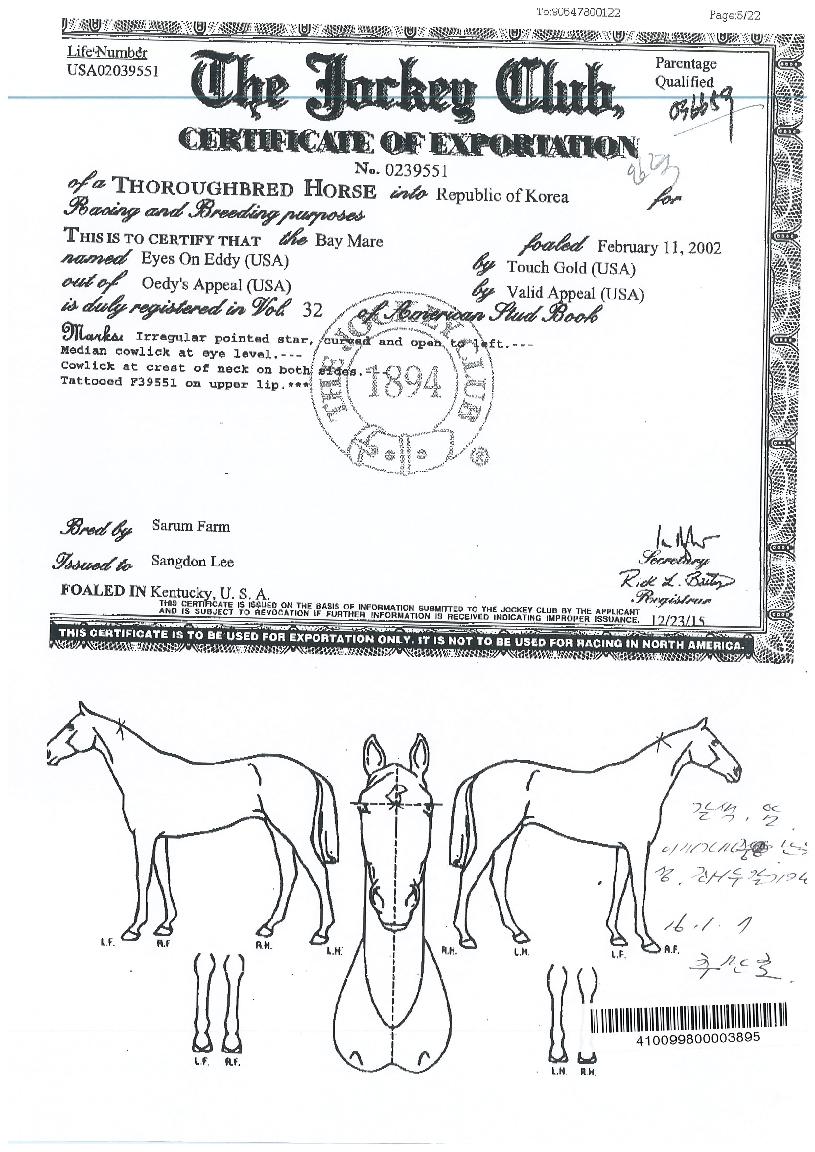 To:90647800122 Page:5/22
Life Number
USA02039551
Parentage
Qualified
036659
The Jockey Club,
CERTIFICATE OF EXPORTATION
No. 0239551
of a THOROUGHBRED HORSE into Republic of Korea for
Racing and Breeding purposes
THIS IS TO CERTIFY THAT the Bay Mare foaled February 11, 2002
named Eyes On Eddy (USA) by Touch Gold (USA)
out of Oedy's Appeal (USA) by Valid Appeal (USA)
is duly registered in Vol. 32 of American Stud Book
Marks: Irregular pointed star, curved and open to left.---
Median cowlick at eye level.---
Cowlick at crest of neck on both sides.---
Tattooed F39551 on upper lip.***
THE JOCKEY CLUB
1894
®
Bred by Sarum Farm
Issued to Sangdon Lee
Secretary
Registrar
FOALED IN Kentucky, U. S. A.
THIS CERTIFICATE IS ISSUED ON THE BASIS OF INFORMATION SUBMITTED TO THE JOCKEY CLUB BY THE APPLICANT
AND IS SUBJECT TO REVOCATION IF FURTHER INFORMATION IS RECEIVED INDICATING IMPROPER ISSUANCE. 12/23/15
THIS CERTIFICATE IS TO BE USED FOR EXPORTATION ONLY. IT IS NOT TO BE USED FOR RACING IN NORTH AMERICA.
L.F. R.F. R.H. L.H. R.H. L.H. L.F. R.F.
16. 1. 7
L.F. R.F. L.H. R.H.
410099800003895